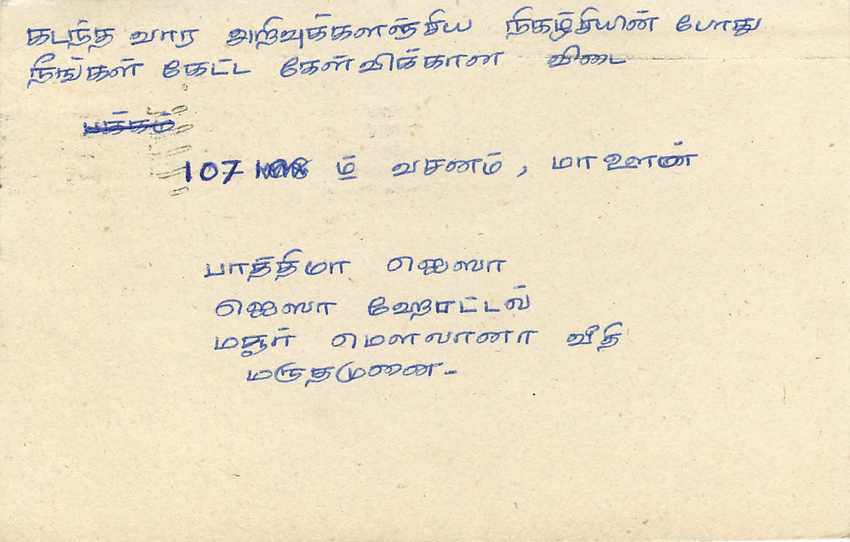 கடந்த வார அறிவுக்களஞ்சிய நிகழ்சியின் போது
நீங்கள் கேட்ட கேள்விக்கான விடை
பக்கம்
107 108 ம் வசனம், மாஊன்
பாத்திமா ஜெஸா
ஜெஸா ஹோட்டல்
மசூர் மௌலானா வீதி
மருதமுனை-